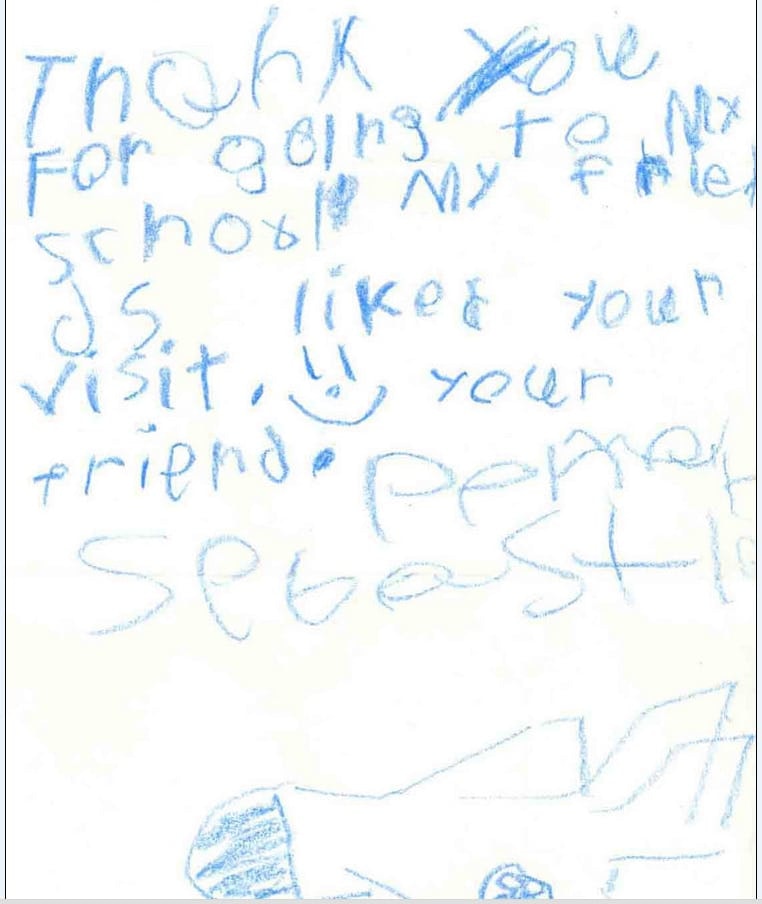 Thank you
For going to My
school! My frie
ds likes your
visit. your
friend.
Sebastia